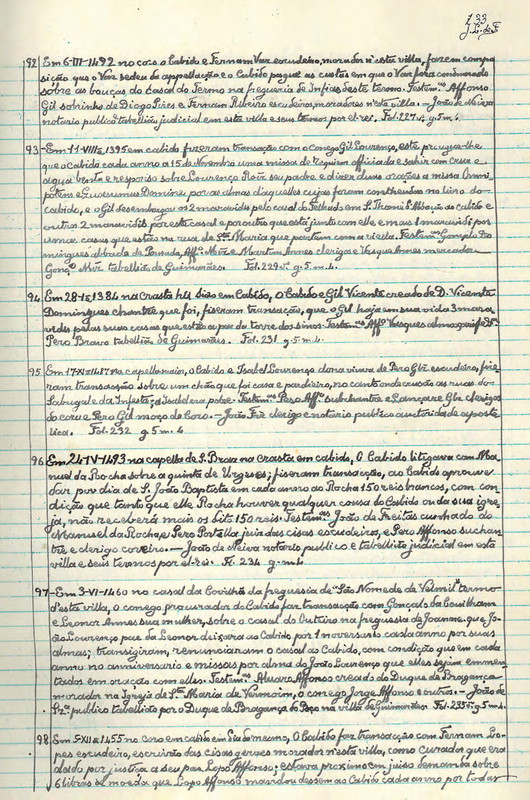 133
J. L. de F.
92 Em 6-III-1492 no coro o Cabido e Fernam Vaz escudeiro, morador n'esta villa, fazem compo
sição que o Vaz se deu da appellação e o Cabido pague as custas em que o Vaz fora condemnado
sobre as bouças do casal do Termo na freguesia de Infias deste termo. Testem.as Affonso
Gil sobrinho de Diogo Pires e Fernam Ribeiro escudeiros, moradores n'esta villa. — João de Neiva
notario publico tabellião judicial em esta villa e seus termos por el-rei. Fol. 227 g. 5 m. 4.
93 — Em 11-VIII-1395 em cabido fizeram transação com o Conego Gil Lourenço, este
que o Cabido cada anno a 15 de Novembro uma missa de requiem officiada e sahir com cruz e
agua benta e responso sobre Lourenço seu padre e dizer duas orações a missa Omni
potens e Domine, por as almas daquelles cujas foram contheudas no livro do
cabido, e o Gil 2 maravidis pelo casal do em S. Thomé ao Cabido e
outros 2 maravidis por este casal e por outro que está junto com elle e mais 1 maravidi por
umas casas que estão na rua de S.ta Maria que partem com a viella. Testem.as Gonçalo Do
mingues abbade de Penada, Aff.º e Martim Annes clerigos e Vasque Annes mercador
Gonç.º tabellião de Guimarães. Fol. 229 vº g. 5 m. 4.
94 Em 28-I-1384 na Crasta hu sião em Cabido, o Cabido e Gil Vicente creado de D. Vicente
Domingues chantre que foi, fiseram transação, que o Gil haja em sua vida 3 mara
vidis pelas suas casas que estão a par da torre dos sinos. Testem.as Aff.º Vasques almoxarife
Pero Bravo tabellião de Guimarães. Fol. 231 g. 5 m. 4.
95 Em 17-XI-1487 na capella maior, o Cabido e Isabel Lourenço dona viuva de Pero Glz escudeiro, fize
ram transação sobre um chão que foi casa e pardieiro, no canto onde as ruas do
Sabugal e da Infesta; a Isabel era pobre. Testem.as Pero Aff.º subchantre e Lançarote Glz clerigos
do coro e Pero Gil moço do Coro. — João clerigo e notario publico autoridade aposto
lica. Fol. 232 g. 5 m. 4.
96 Em 24-IV-1493 na capella de S. Braz na crasta em cabido, O Cabido litigava com Ma
nuel da Rocha sobre a quinta de Urgeses; fiseram transação, ao Cabido aprouve
dar por dia de S. João Baptista em cada anno ao Rocha 150 reis brancos, com con
dicção que tanto que elle Rocha houver qualquer cousa do Cabido ou da sua igre
ja, não receberá mais os ditos 150 reis. Testem.as João de Freitas cunhado do
Manuel da Rocha, e Pero Portella juiz das cisas escudeiros, e Pero Affonso suchan
tre e clerigo coreiro. — João de Neiva notario publico e tabellião judicial em esta
villa e seus termos por el-rei. Fl. 234 g. m. 4.
97 — Em 3-VI-1460 no casal da Covilhã da freguesia de "São Nomede de Vermil" termo
d'esta villa, o conego procurador do Cabido faz transação com Gonçalo da Covilham
e Leonor Annes sua mulher, sobre o casal do Outeiro na freguesia de Joanne, que Jo
ão Lourenço pae da Leonor deixara ao Cabido por 1 aniversario cada anno por suas
almas; transigiram, renunciaram o casal ao Cabido, com condição que em cada
anno no anniversario e missas por alma do João Lourenço que elles sejam emmen
tados em oração com elles. Testem.as Alvaro Affonso creado do Duque de Bragança
morador na Igreja de S.ta Maria de Vermoim, o conego Jorge Affonso e outros. — João de
publico tabellião por o Duque de Bragança do Paço na villa de Guimarães. Fol. 235 vº g. 5 m. 4.
98 Em 5-XII-1455 no coro em cabido em São o Cabido faz transação com Fernam Lo
pes escudeiro, escrivão das cisas geraes morador n'esta villa, como curador que era
dado por justiça a seu pae Lopo Affonso; estava proximo em juiso demanda sobre
6 libras de moeda que Lopo Affonso mandou dessem ao Cabido cada anno por todas